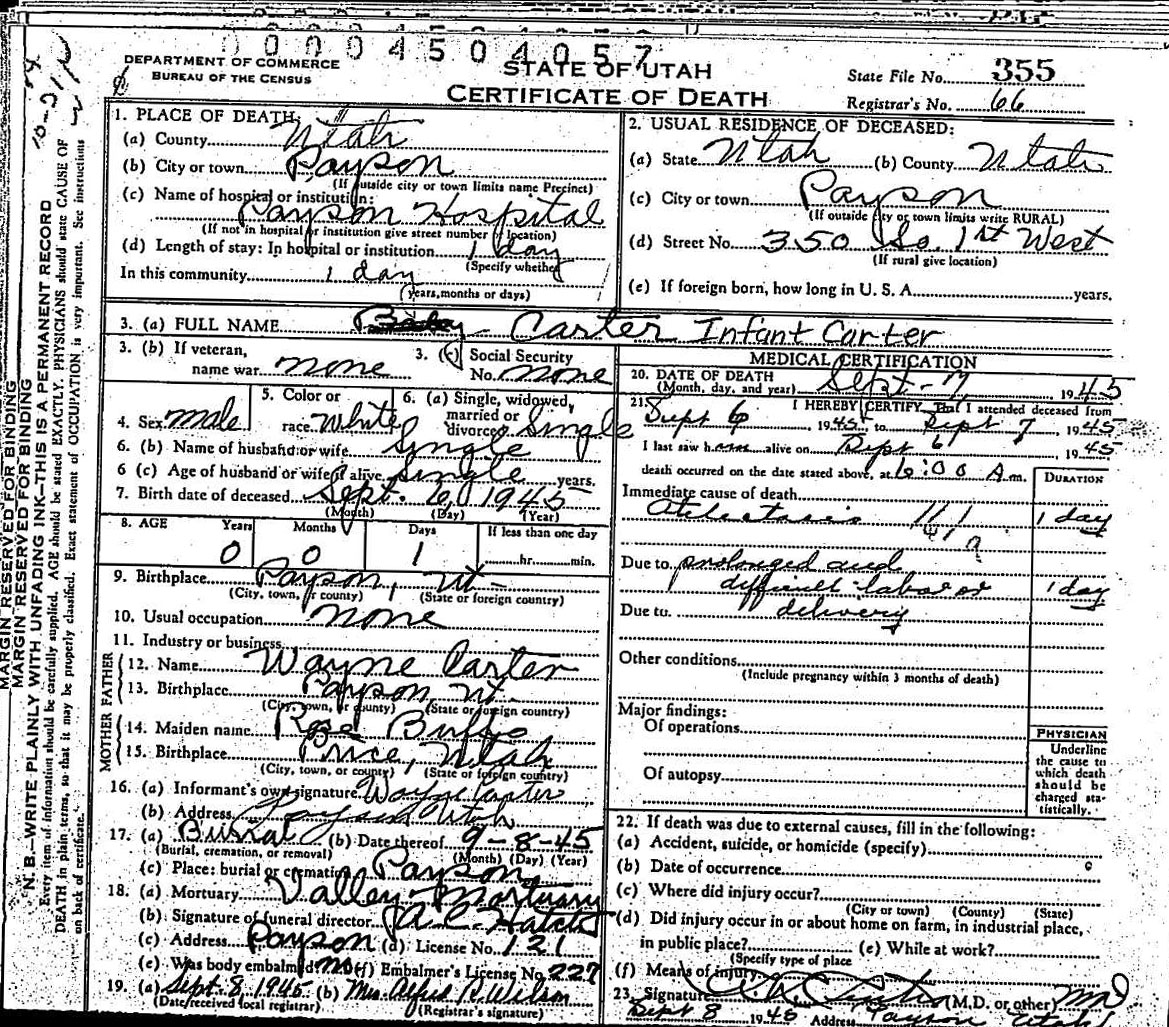 0 0 0 0 4 5 0 4 0 5 7
DEPARTMENT OF COMMERCE
BUREAU OF THE CENSUS
STATE OF UTAH
CERTIFICATE OF DEATH
State File No. 355
Registrar's No. 66
MARGIN RESERVED FOR BINDING
MARGIN RESERVED FOR BINDING
N. B.—WRITE PLAINLY WITH UNFADING INK—THIS IS A PERMANENT RECORD
Every item of information should be carefully supplied. AGE should be stated EXACTLY. PHYSICIANS should state CAUSE OF
DEATH in plain terms, so that it may be properly classified. Exact statement of OCCUPATION is very important. See instructions
on back of certificate.
1. PLACE OF DEATH:
(a) County Utah
(b) City or town Payson
(If outside city or town limits name Precinct)
(c) Name of hospital or institution:
Payson Hospital
(If not in hospital or institution give street number of location)
(d) Length of stay: In hospital or institution 1 day
(Specify whether
In this community 1 day
(years, months or days)
2. USUAL RESIDENCE OF DECEASED:
(a) State Utah (b) County Utah
(c) City or town Payson
(If outside city or town limits write RURAL)
(d) Street No. 350 So. 1st West
(If rural give location)
(e) If foreign born, how long in U. S. A. years.
3. (a) FULL NAME Baby Carter Infant Carter
3. (b) If veteran,
name war none
3. (c) Social Security
No. none
4. Sex male
5. Color or
race White
6. (a) Single, widowed,
married or
divorced Single
6. (b) Name of husband or wife Single
6 (c) Age of husband or wife if alive Single years.
7. Birth date of deceased Sept. 6, 1945
(Month) (Day) (Year)
8. AGE Years Months Days If less than one day
0 0 1 hr. min.
9. Birthplace Payson, Ut
(City, town, or county) (State or foreign country)
10. Usual occupation none
11. Industry or business
FATHER
12. Name Wayne Carter
13. Birthplace Payson, Ut.
(City, town, or county) (State or foreign country)
MOTHER
14. Maiden name Rose
15. Birthplace Price, Utah
(City, town, or county) (State or foreign country)
16. (a) Informant's own signature Wayne Carter
(b) Address Payson Utah
17. (a) Burial (b) Date thereof 9-8-45
(Burial, cremation, or removal) (Month) (Day) (Year)
(c) Place: burial or cremation Payson
18. (a) Mortuary Valley Mortuary
(b) Signature of funeral director A. L. Hatch
(c) Address Payson (d) License No. 121
(e) Was body embalmed? No (f) Embalmer's License No. 227
19. (a) Sept. 8, 1945 (b) Mrs. Alfred R. Wilson
(Date received local registrar) (Registrar's signature)
MEDICAL CERTIFICATION
20. DATE OF DEATH
(Month, day, and year) Sept - 7, 1945
21. I HEREBY CERTIFY, That I attended deceased from
Sept 6 1945 to Sept 7 1945
I last saw him alive on Sept 6 1945
death occurred on the date stated above, at 6:00 A.m.
DURATION
Immediate cause of death
Atelectasis 1 day
Due to prolonged and
difficult labor or 1 day
Due to delivery
Other conditions
(Include pregnancy within 3 months of death)
Major findings:
Of operations
Of autopsy
PHYSICIAN
Underline
the cause to
which death
should be
charged sta-
tistically.
22. If death was due to external causes, fill in the following:
(a) Accident, suicide, or homicide (specify)
(b) Date of occurrence
(c) Where did injury occur?
(City or town) (County) (State)
(d) Did injury occur in or about home on farm, in industrial place,
in public place? (e) While at work?
(Specify type of place
(f) Means of injury
23. Signature (M.D. or other) MD
Sept 8 1945 Address Payson Utah